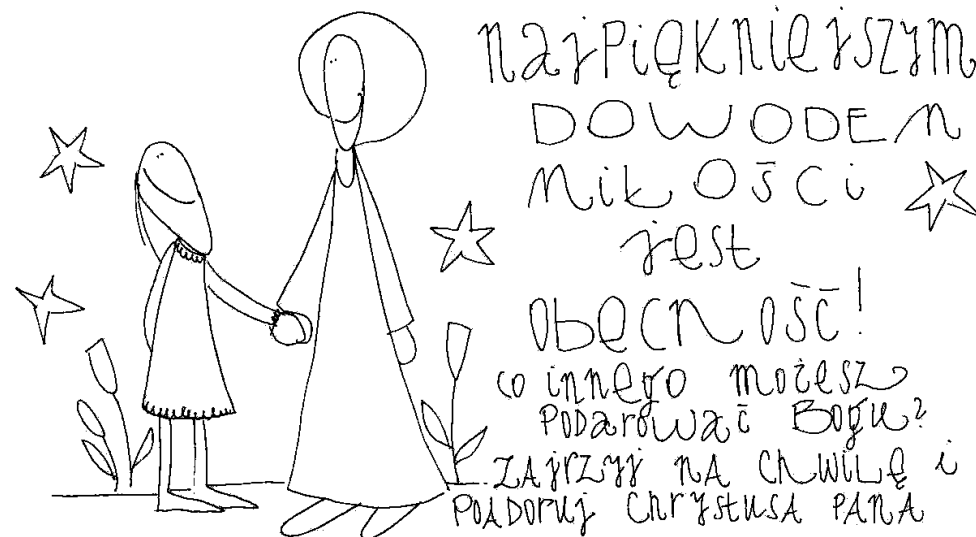 najPiękniejszym
DOWODEM
MiŁOŚCi
jest
ObecNOŚĆ!
co innego możesz
PODarować Bogu?
ZAjrzyj NA ChWiLę i
POADoruj ChrystusA PANA